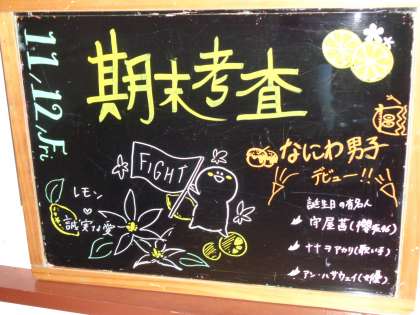 11/12.Fri
期末考査
FIGHT
なにわ男子
デビュー!!
レモン
誠実な愛
誕生日の有名人
守屋茜(櫻坂46)
ナナヲアカリ(歌い手)
アン・ハサウェイ(女優)